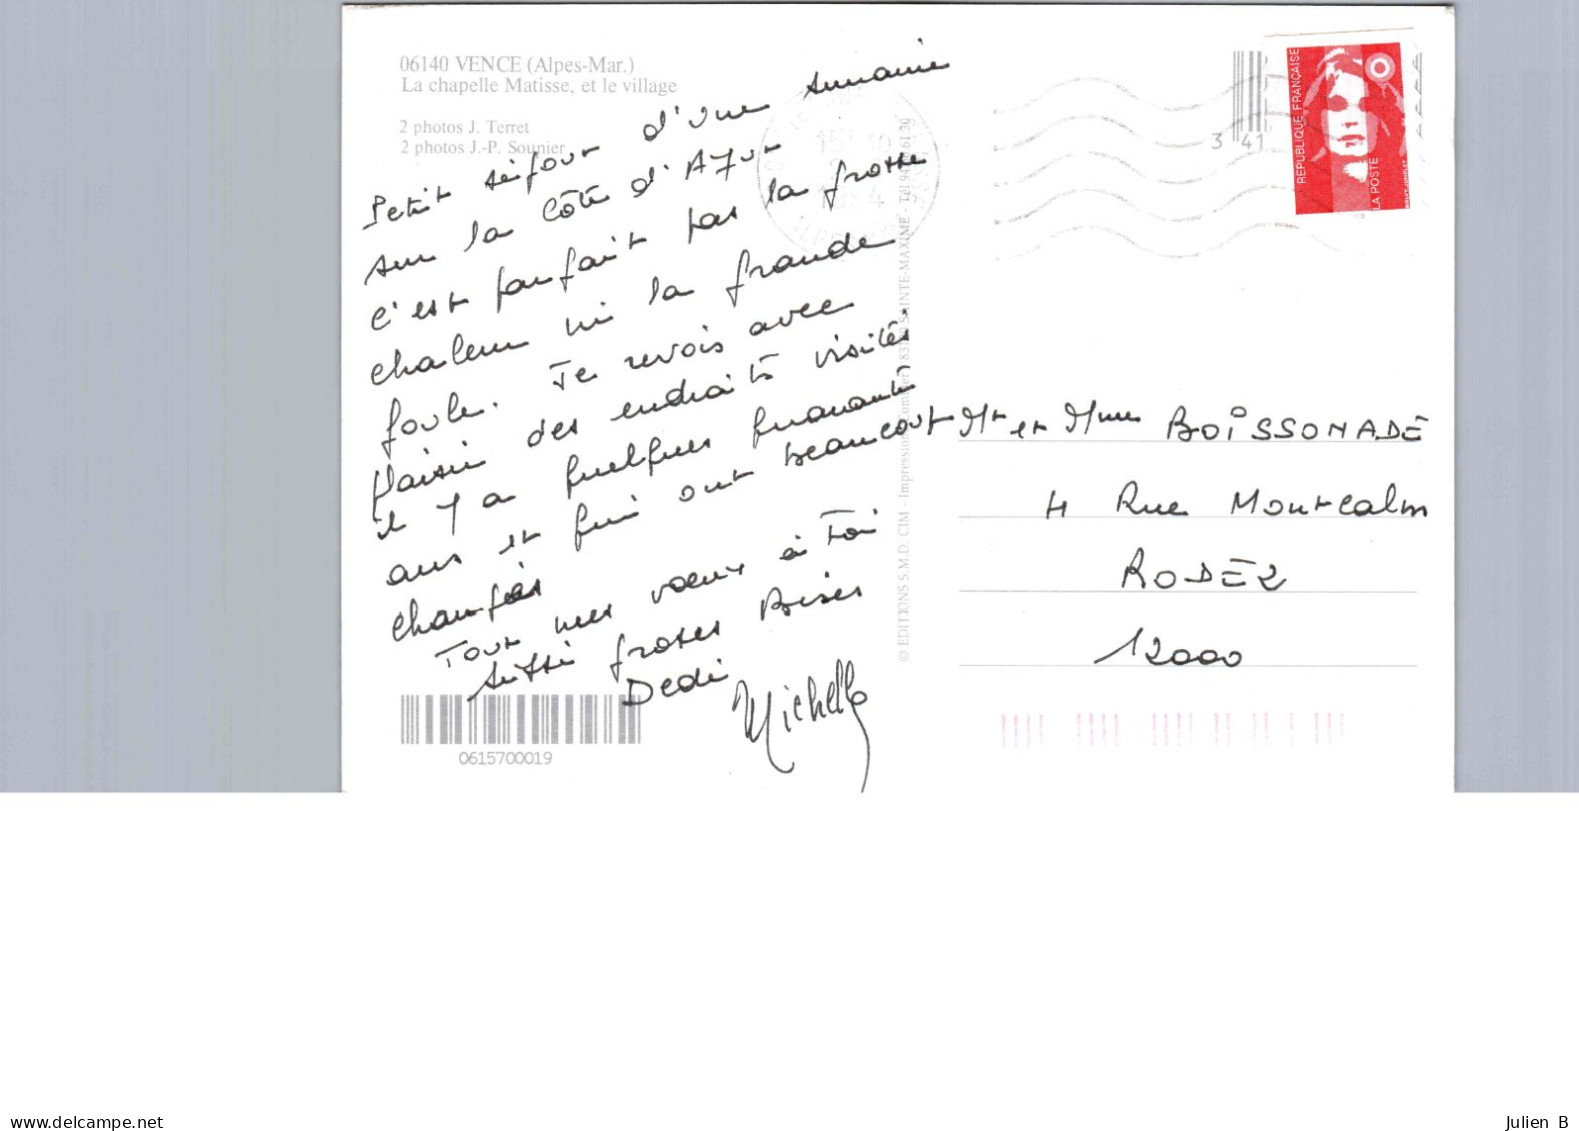 06140 VENCE (Alpes-Mar.)
La chapelle Matisse, et le village
2 photos J. Terret
2 photos J.-P. Sounier
Petit séjour d'une semaine
sur la Côte d'Azur
c'est parfait pas la grosse
chaleur ni la grande
foule. Je revois avec
plaisir des endroits visités
il y a quelques quarante
ans et qui ont beaucoup
changés
Tout mes vœux à toi
aussi grosses Bises
Dédé
Michelle
0615700019
© EDITIONS S.M.D. CIM - Impression Combier 83120 SAINTE-MAXIME - Tél. 94 61.30
15
1994
3 41
REPUBLIQUE FRANÇAISE
LA POSTE
Mr et Mme BOISSONADE
4 Rue Montcalm
RODEZ
12000
Julien B